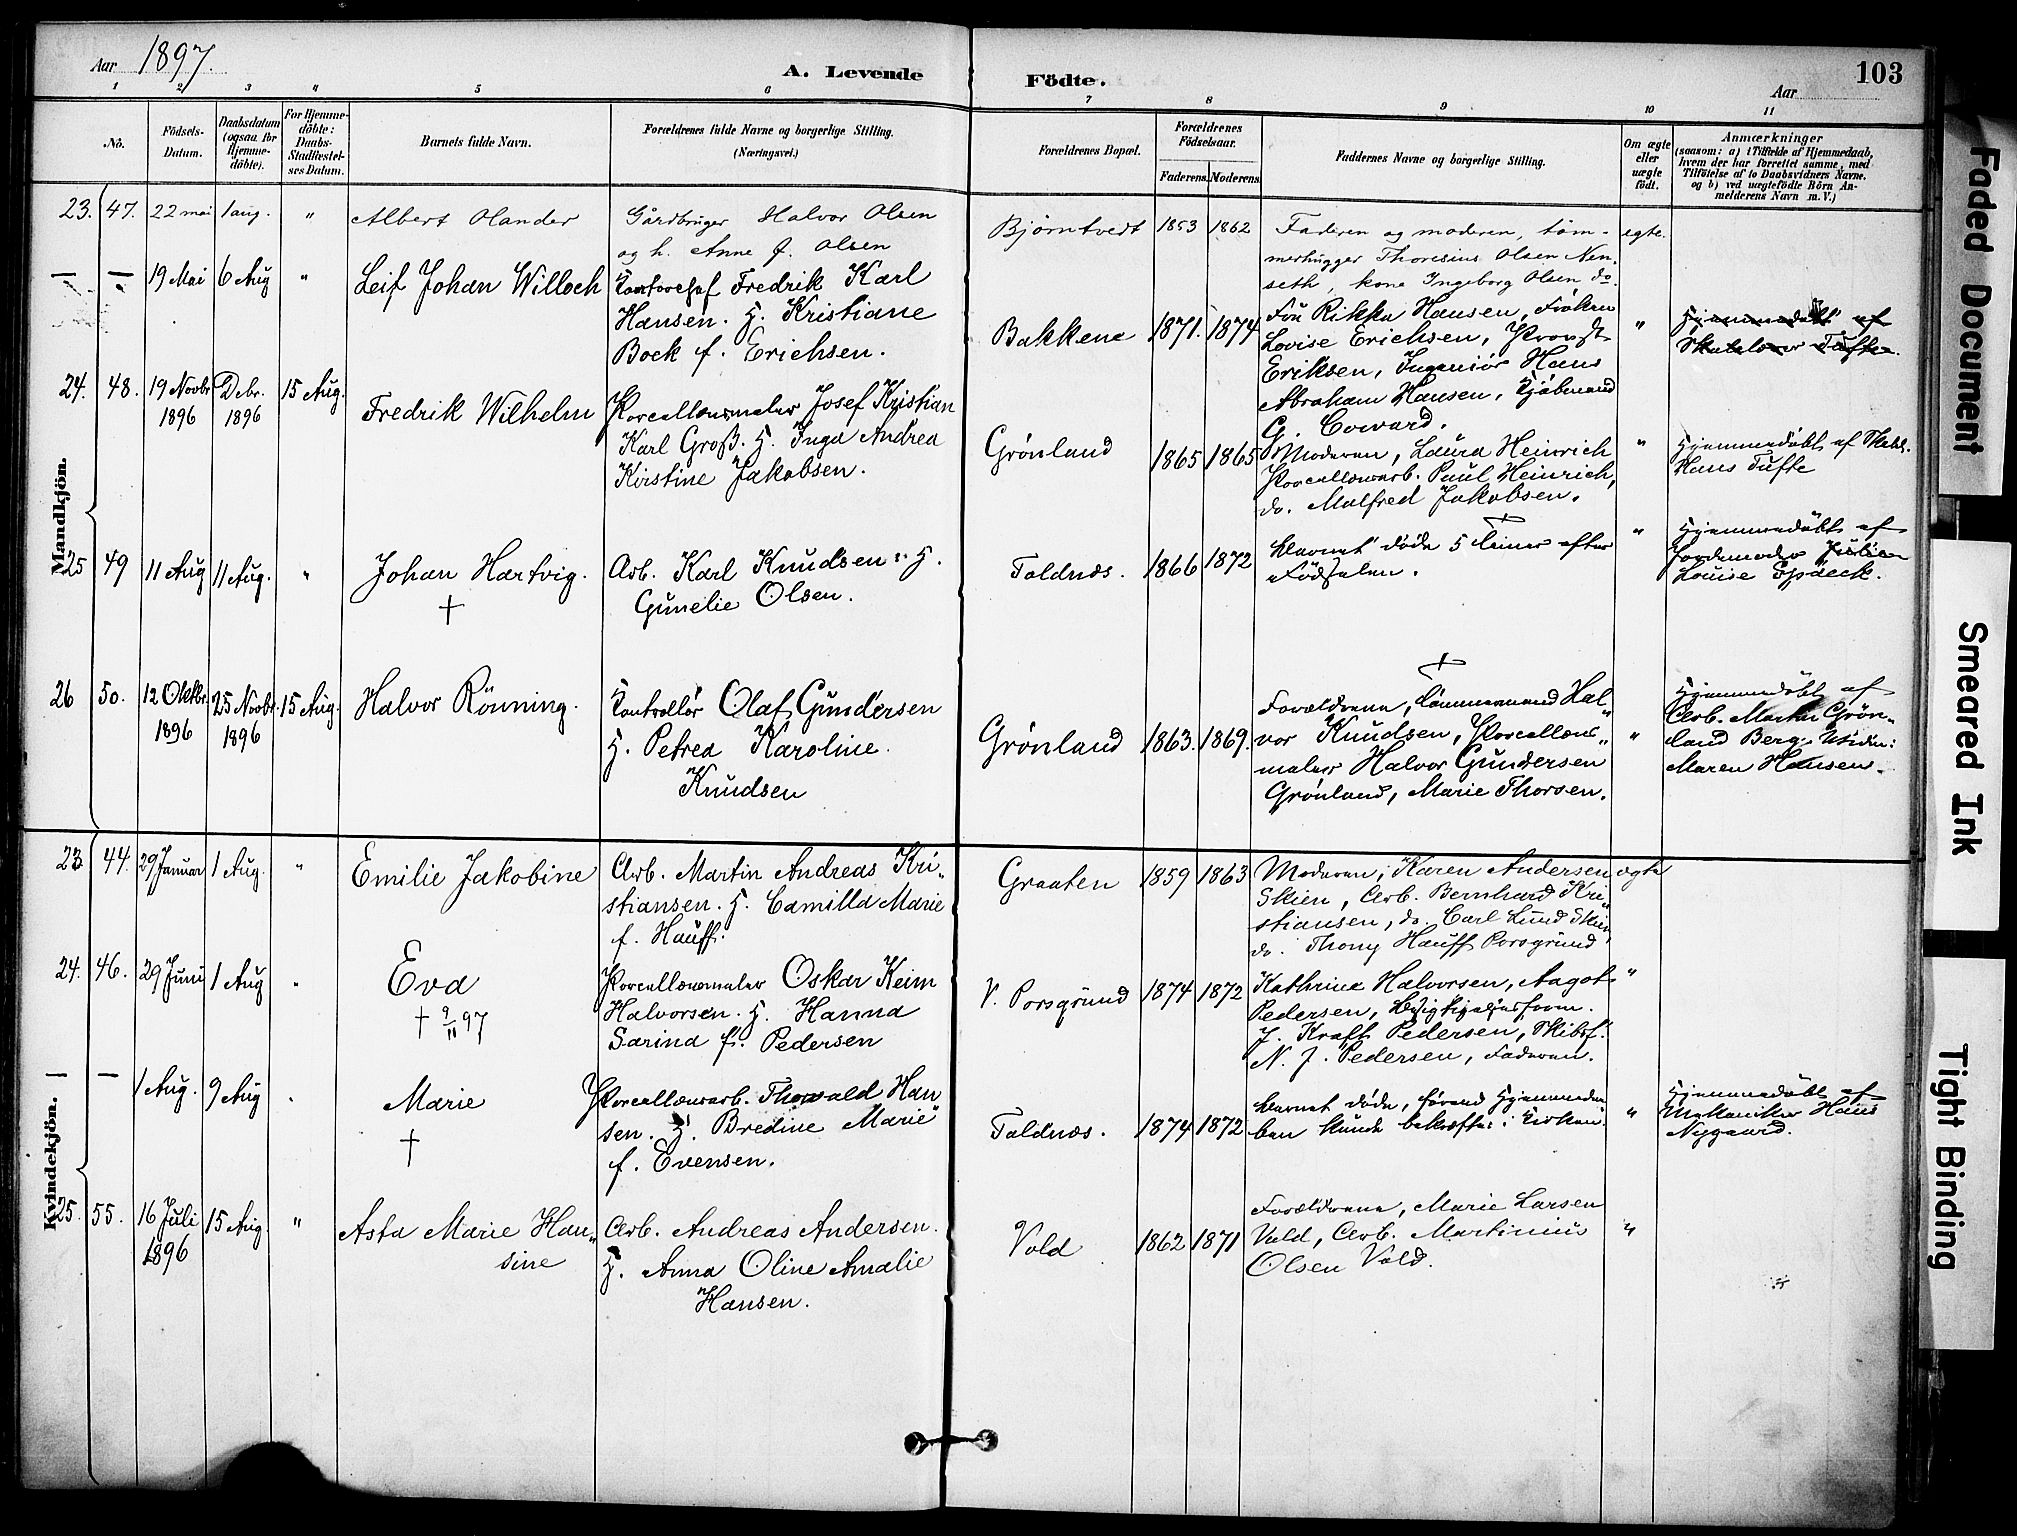 Aar 1897.
A. Levende
Födte.
Aar
103
1 2 3 4 5 6 7 8 9 10 11
No.
Födsels-
Datum.
Daabsdatum
(ogsaa for
Hjemme-
döbte).
For Hjemme-
döbte:
Daabs-
Stadfæstel-
ses Datum.
Barnets fulde Navn.
Forældrenes fulde Navne og borgerlige Stilling.
(Næringsvei.)
Forældrenes Bopæl.
Forældrenes
Födselsaar.
Faderens. Moderens.
Faddernes Navne og borgerlige Stilling.
Om ægte
eller
uægte
födt.
Anmærkninger
(saasom: a) i Tilfælde af Hjemmedaab,
hvem der har forrettet samme, med
Tilföielse af to Daabsvidners Navne.
og b) ved uægtefödte Börn An-
melderens Navn m. V.)
Mandkjön.
23. 47. 22 mai 1 aug. "
Albert Olander
Gårdbruger Halvor Olsen
og h. Anne J. Olsen
Bjørntvedt 1853 1862
Faderen og moderen, töm-
merhugger Thoresius Olsen Nen-
seth, kone Ingeborg Olsen do.
egte.
— — 19 Mai 6 Aug "
Leif Johan Willoch
Kontorchef Fredrik Karl
Hansen. H. Kristiane
Bock f. Erichsen.
Bakkene 1871. 1874
Fru Rikka Hansen, Frøken
Lovise Erichsen, Provst
Eriksen, Ingeniör Hans
Abraham Hansen, Kjöbmand
G. Coward.
"
Hjemmedöbt af
Skolelærer Tufte.
24. 48. 19 Novbr 1896 Debr. 1896 15 Aug.
Fredrik Wilhelm
Porcellænsmaler Josef Kristian
Karl Groß. H. Inga Andrea
Kirstine Jakobsen.
Grönland 1865 1865
Moderen, Laura Heinrich
Porcellænsarb. Paul Heinrich,
do. Malfred Jakobsen.
"
Hjemmedöbt af Skol.
Hans Tufte
25 49 11 Aug 11 Aug. "
Johan Hartvig.
†
Arb. Karl Knudsen: H.
Gunelie Olsen.
Toldnæs. 1866 1872
†
Barnet döde 5 Timer efter
Födselen.
"
Hjemmedöbt af
Jordemoder Julie
Louise Späeck.
26 50. 12 Oktbr. 1896 25 Novbr. 1896 15 Aug.
Halvor Rönning.
Kontrollör Olaf Gundersen
H. Petrea Karoline
Knudsen
Grönland 1863. 1869.
†
Forældrene, Tömmermand Hal-
vor Knudsen, Porcellæns-
maler Halvor Gundersen
Grönland, Marie Thorsen.
"
Hjemmedöbt af
Arb. Martin Grön-
land Berg.
Maren Hansen.
Kvindekjön.
23 44 29 Januar 1 Aug. "
Emilie Jakobine
Arb. Martin Andreas Kri-
stiansen. H. Camilla Marie
f. Hauff.
Graaten 1859 1863
Moderen, Karen Andersen
Skien, Arb. Bernhard Kri-
stiansen, do. Carl Lund Skien,
do. Thony Hauff Porsgrund
ægte
24. 46. 29 Juni 1 Aug "
Eva
† 9/11 97
Porcellænsmaler Oskar Keim
Halvorsen. H. Hanna
Sarina f. Pedersen
V. Porsgrund 1874 1872
Kathrine Halvorsen, Aagot
Pedersen, Besigtigelsesform.
J. Kraft Pedersen, Skibsf.
N. J. Pedersen, Faderen.
"
— — 1 Aug. 9 Aug "
Marie
†
Porcellænsarb. Thorvald Han
sen. H. Bredine Marie
f. Evensen.
Toldnæs. 1874 1872
Barnet döde, förend Hjemmedaa
ben kunde bekræftes i Kirken.
"
Hjemmedöbt af
Mekaniker Hans
Nygaard.
25. 55. 16 Juli 1896 15 Aug. "
Asta Marie Han-
sine
Arb. Andreas Andersen.
H. Anna Oline Amalie
Hansen.
Vold 1862 1871
Forældrene, Marie Larsen
Vold, Arb. Martinius
Olsen Vold.
"
Faded Document
Smeared Ink
Tight Binding